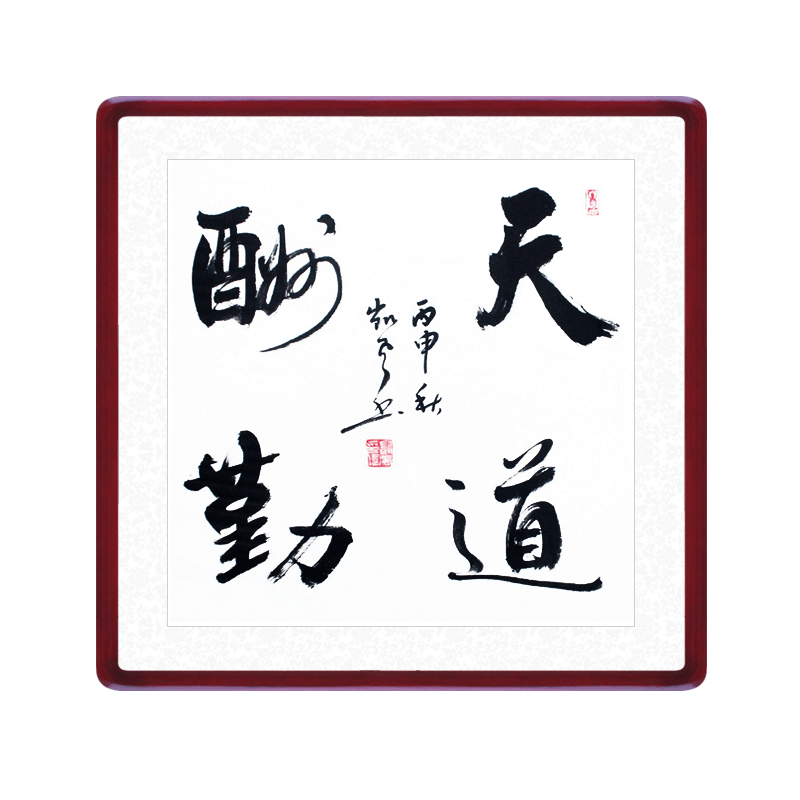 天道
酬勤
丙申秋